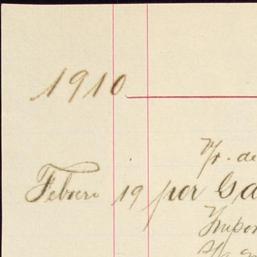 1910
Vr. de
Febrero 19 por Ga
Impor